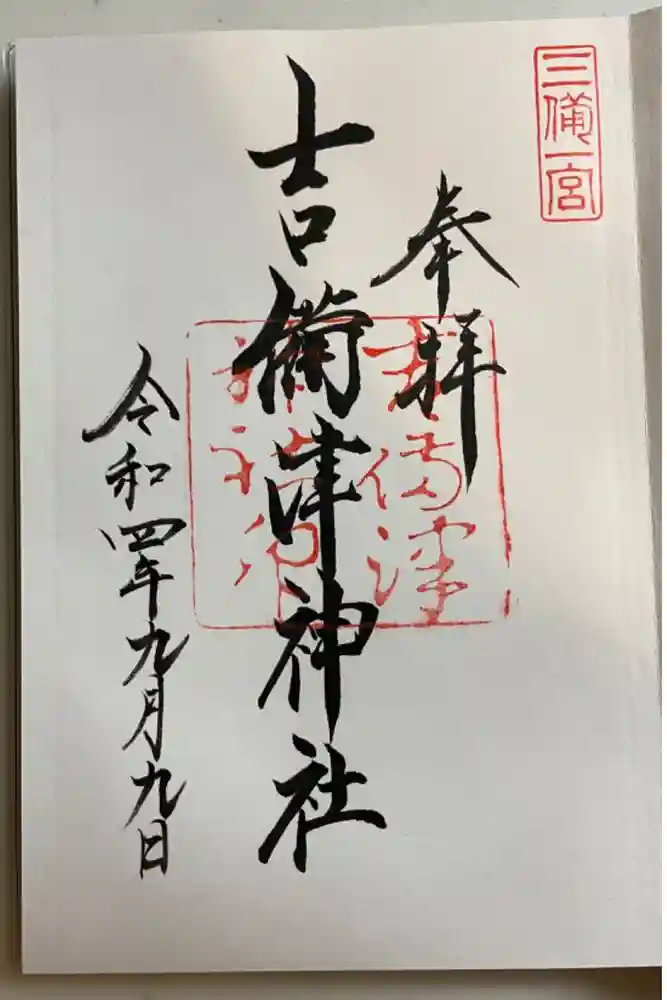 三備一宮
奉拝
吉備津神社
吉備津
令和四年九月九日